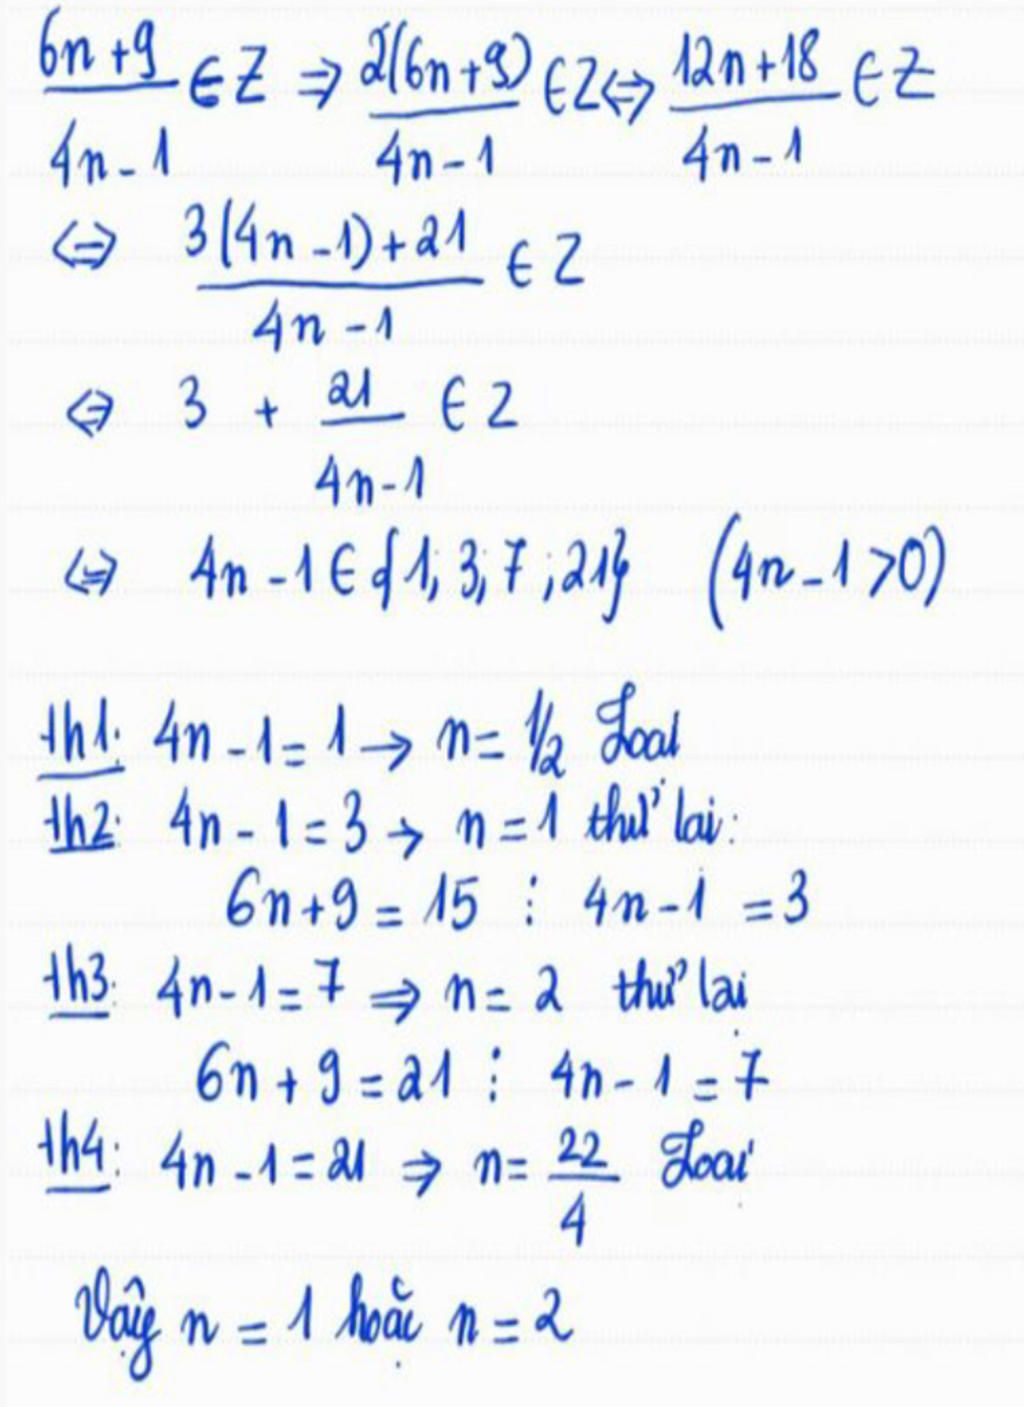 (6n+9)/(4n-1) ∈ Z ⇒ 2(6n+9)/(4n-1) ∈ Z ⇔ (12n+18)/(4n-1) ∈ Z
⇔ (3(4n-1)+21)/(4n-1) ∈ Z
⇔ 3 + 21/(4n-1) ∈ Z
⇔ 4n-1 ∈ {1; 3; 7; 21} (4n-1>0)
th1: 4n-1 = 1 → n = 1/2 Loại
th2: 4n-1 = 3 → n = 1 thử lại:
6n+9 = 15 ⋮ 4n-1 = 3
th3: 4n-1 = 7 ⇒ n = 2 thử lại
6n+9 = 21 ⋮ 4n-1 = 7
th4: 4n-1 = 21 ⇒ n = 22/4 Loại
Vậy n = 1 hoặc n = 2